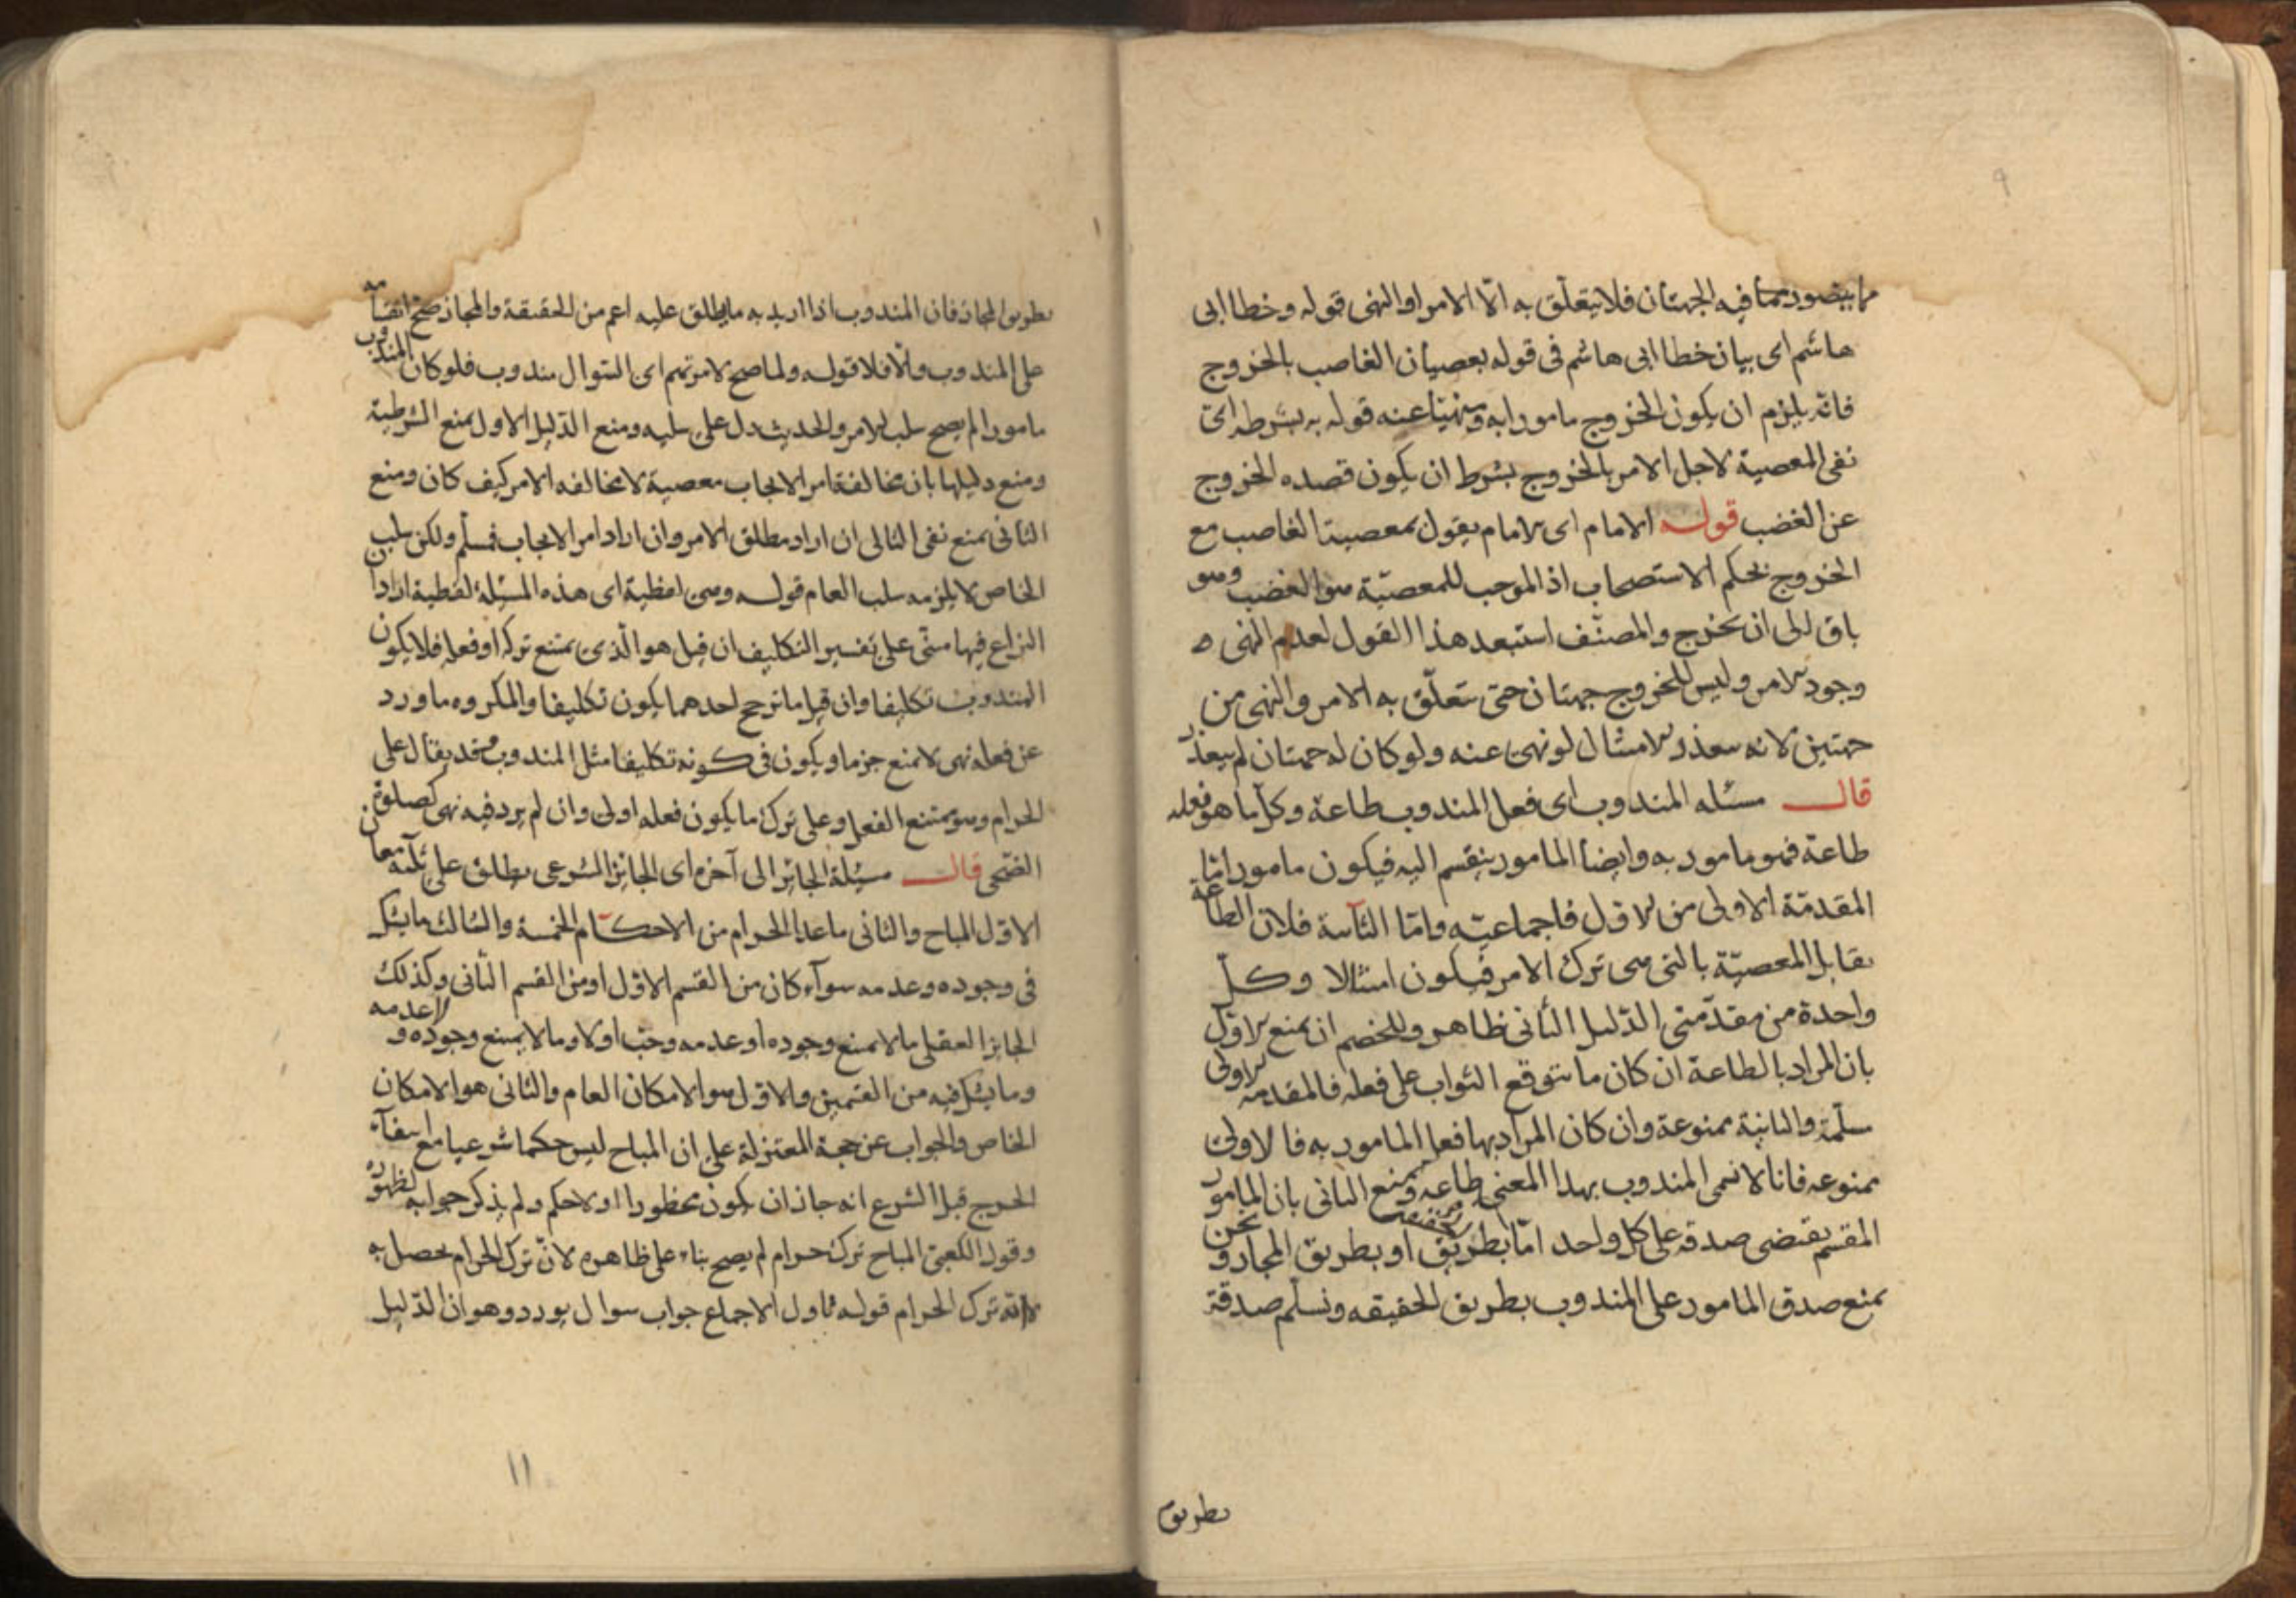 ٩
ما يتصور مما فيه الجهتان فلا يتعلق به الّا الامر او النهى قوله وخطا ابى
هاشم اى بيان خطا ابى هاشم فى قوله بعصيان الغاصب بالخروج
فانّه يلزم ان يكون الخروج مامورا به ومنهيّا عنه قوله به بشرطه اى
نفى المعصية لاجل الامر بالخروج بشرط ان يكون قصده الخروج
عن الغضب قوله الامام اى الامام يقول بمعصية الغاصب مع
الخروج بحكم الاستصحاب اذ الموجب للمعصيّة هو الغضب وهو
باق الى ان يخرج والمصنّف استبعد هذا القول لعدم النهى ه
وجود الامر وليس للخروج جهتان حتى يتعلّق به الامر والنهى من
جهتين لانه يتعذر الامتثال لو نهى عنه ولو كان له جهتان لم يتعذر
قال مسئله المندوب اى فعل المندوب طاعة وكل ما هو فعله
طاعة فهو مامور به وايضا المامور ينقسم اليه فيكون مامورا امّا
المقدمّة الاولى من الاول فاجماعيّه وامّا الثانية فلان الطاعة
تقابل المعصيّة بالتى هى ترك الامر فيكون امتثالا وكلّ
واحدة من مقدّمتى الدّليل الثانى ظاهر وللخصم ان يمنع الاوّل
بان المراد بالطاعة ان كان ما يتوقع الثواب على فعله فالمقدمه الاولى
سلّمة والثانية ممنوعة وان كان المراد بها فعل المامور به فالاولى
ممنوعه فانا لا نسمى المندوب بهذا المعنى طاعه ويمنع الثانى بان المامور
المقسم يقتضى صدقه على كل واحد امّا بطريق الحقيقة او بطريق المجاز ونحن
نمنع صدق المامور على المندوب بطريق الحقيقه ونسلّم صدقة
بطريق
بطريق المجاز فان المندوب اذا اريد به ما يطلق عليه اعم من الحقيقة والمجاز صحّ انقسامه
على المندوب والّا فلا قوله ولما صح لامرتهم اى السّوال مندوب فلو كان المندوب
مامورا لم يصح سلب الامر والحديث دل على سلبه ومنع الدّليل الاول بمنع الشرطية
ومنع دليلها بان مخالفة امر الايجاب معصية لا مخالفه الامر كيف كان ومنع
الثانى بمنع نفى التالى ان اراد مطلق الامر وان اراد امر الايجاب فمسلّم ولكن سلب
الخاص لا يلزمه سلب العام قوله وهى لفظية اى هذه المسئلة لفظية اذا
النزاع فيها مبنى على تفسير التكليف ان قيل هو الّذى يمتنع تركه او فعله فلا يكون
المندوب تكليفا وان قيل ما ترجح احدهما يكون تكليفا والمكروه ما ورد
عن فعله نهى لا منع جزما ويكون فى كونه تكليفا مثل المندوب وقد يقال على
الحرام وهو يمتنع الفعل وعلى ترك ما يكون فعله اولى وان لم يرد فيه نهى كصلوة
الضّحى قال مسئلة الجائز الى آخره اى الجائز الشرعى يطلق على ثلثه معان
الاوّل المباح والثانى ما عدا الحرام من الاحكام الخمسة والثالث ما يشك
فى وجوده وعدمه سوآء كان من القسم الاوّل او من القسم الثانى وكذلك
الجايز العقلى ما لا يمنع وجوده او عدمه وجب اولا وما لا يمنع وجوده ولا عدمه
وما يشك فيه من القسمين والاوّل هو الامكان العام والثانى هو الامكان
الخاص والجواب عن حجة المعتزلة على ان المباح ليس حكما شرعيا مع انتفاء
الحرج قبل الشرع انه جاز ان يكون محظورا او لا حكم ولم يذكر جوابه لظهوره
وقول الكعبى المباح ترك حرام لم يصح بناء على ظاهره لانّ ترك الحرام يحصل به
لا انّه ترك الحرام قوله تاول الاجماع جواب سوال يورد وهو ان الدّليل
١١